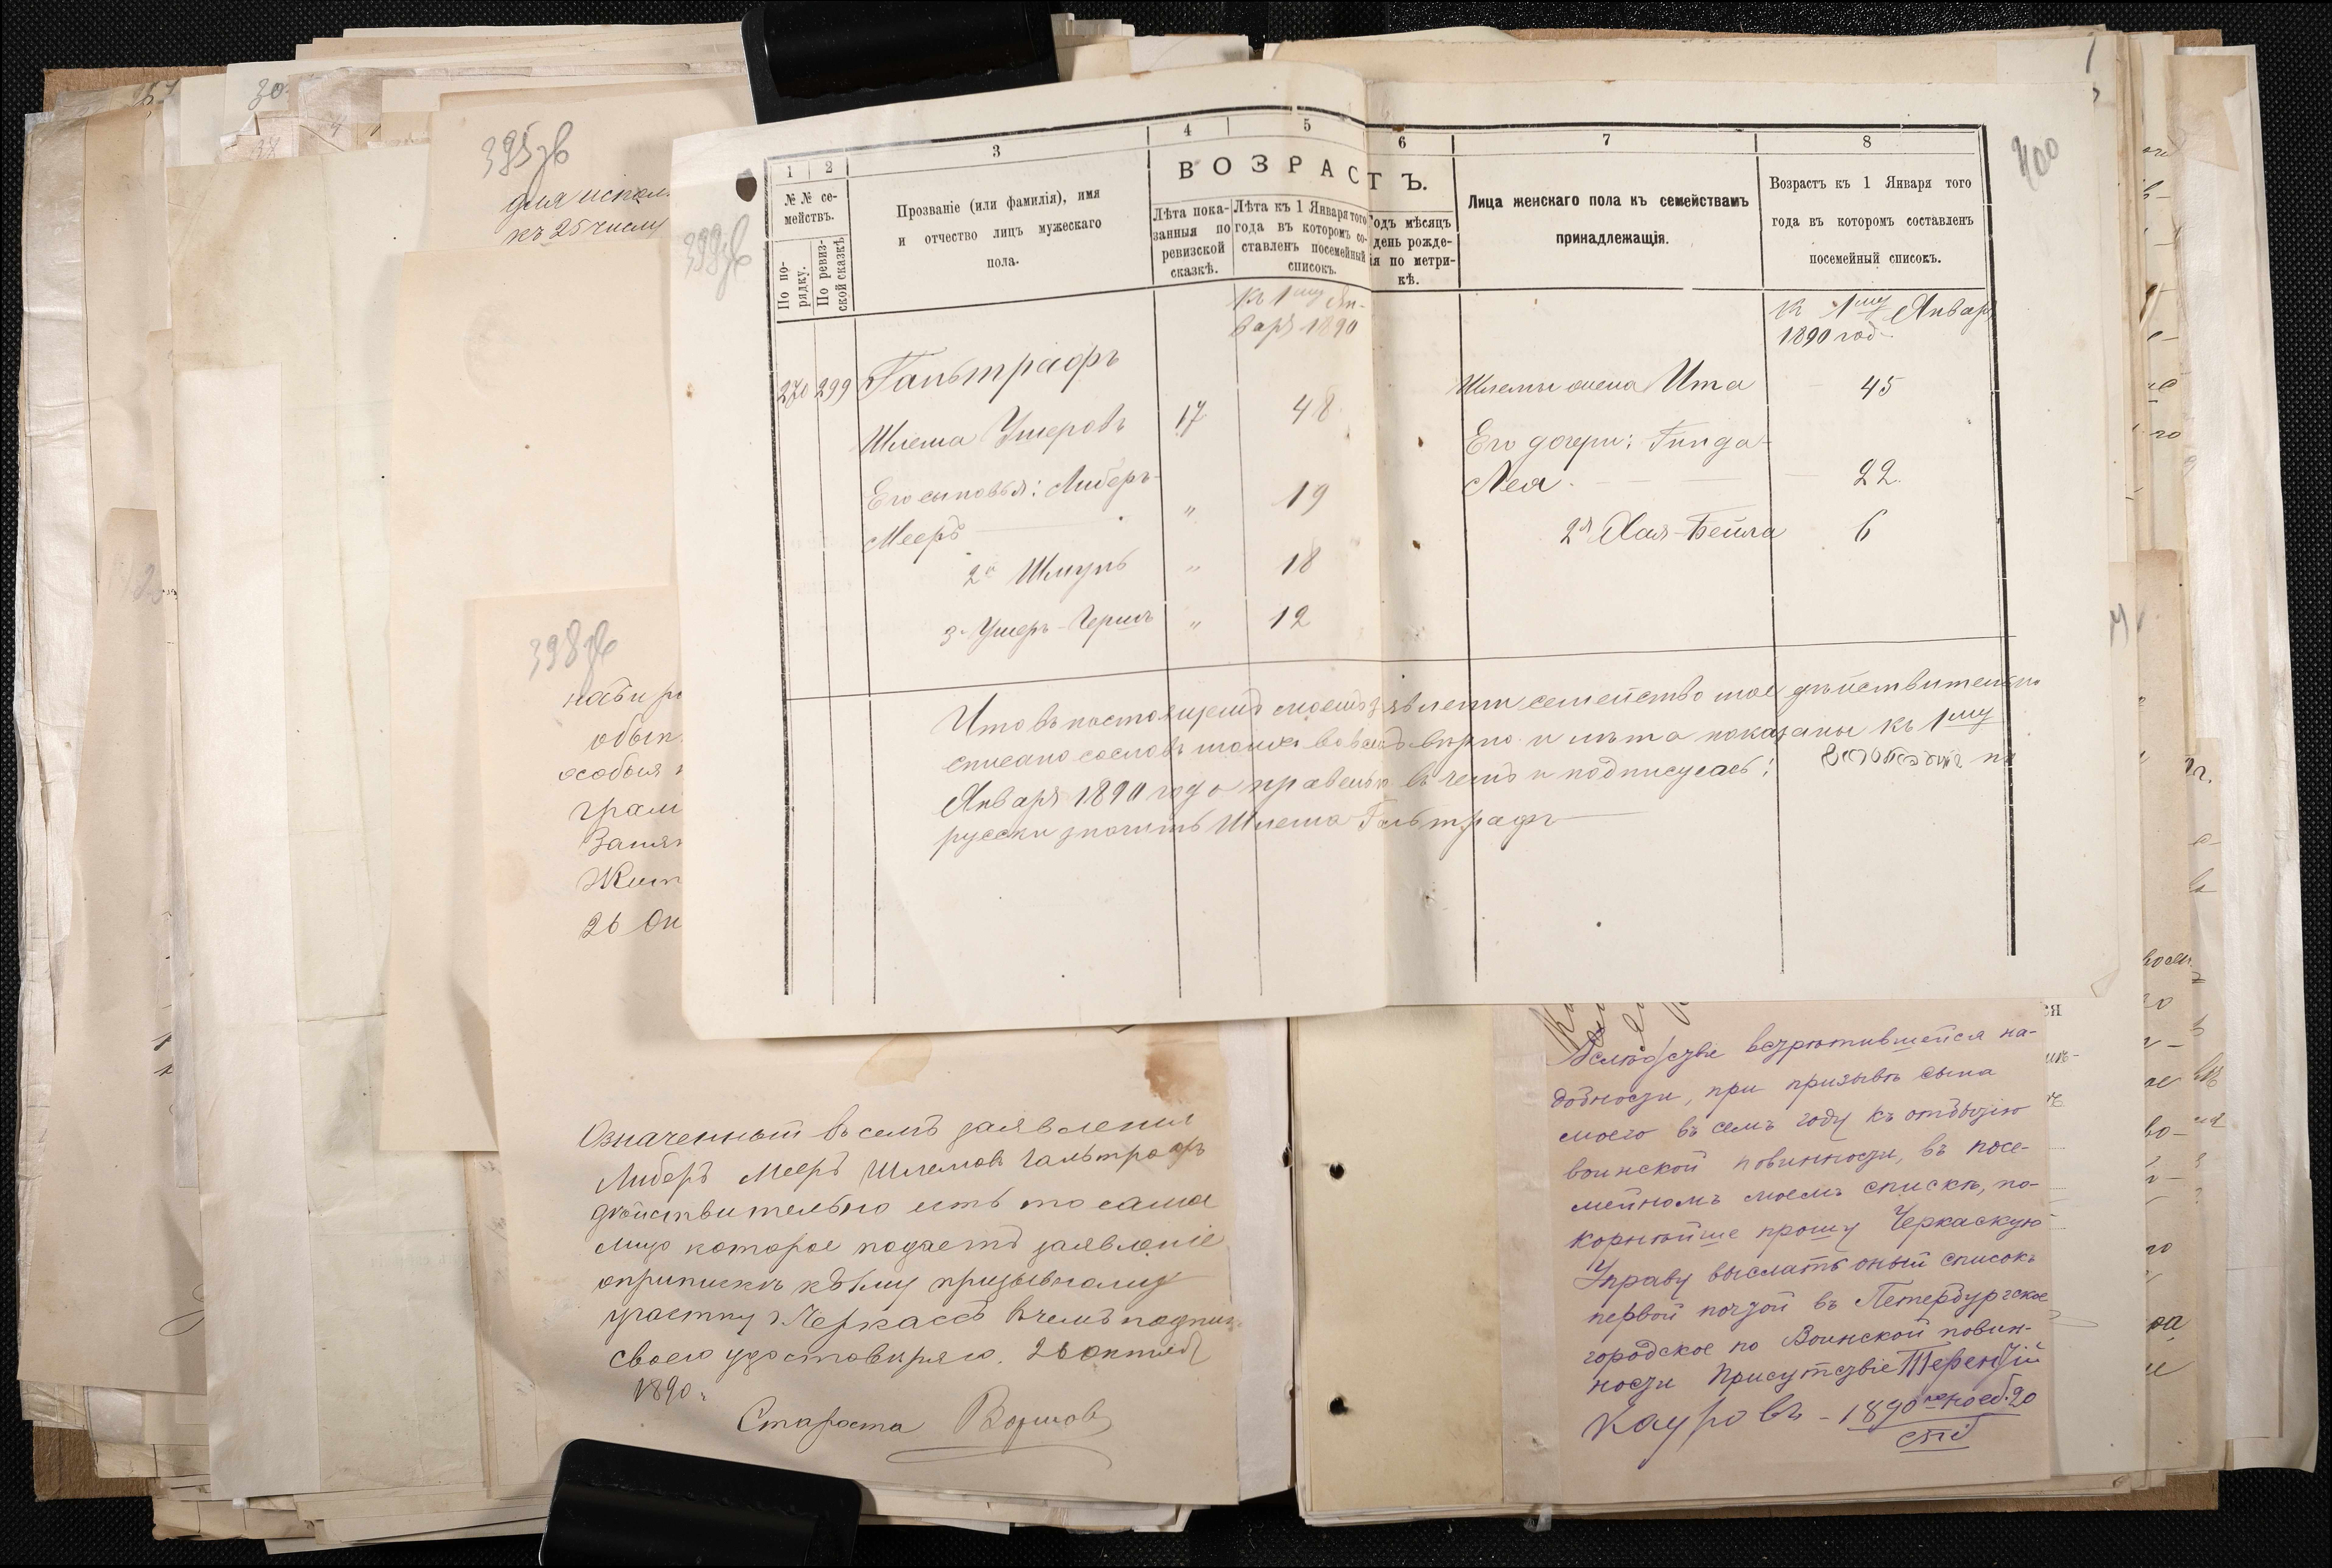 30
395 зв
для испол
къ 25 числу
399 зв
400
1 2 3 4 5 6 7 8
№№ се-
мействъ.
По по-
рядку.
По ревиз-
ской сказкѣ
Прозваніе (или фамилія), имя
и отчество лицъ мужескаго
пола.
ВОЗРАСТЪ.
Лѣта пока-
занныя по
ревизской
сказкѣ.
Лѣта къ 1 Января того
года въ которомъ со-
ставленъ посемейный
списокъ.
одъ мѣсяцъ
день рожде-
ія по метри-
кѣ.
Лица женскаго пола къ семействамъ
принадлежащія.
Возрастъ къ 1 Января того
года въ которомъ составленъ
посемейный списокъ.
Къ 1му Ян-
варѣ 1890
К 1му Январѣ
1890 год
270 299 Гальтрафъ
Шлемы жена Ита 45
Шлема Ушеровъ 17 48
Его дочери: Гинда-
Лея 22
Его сыновья: Либеръ-
Мееръ " 19
2я Хая-Бейла 6
2й Шмуль " 18
3й Ушеръ-Гершъ " 12
Что въ настоящемъ моемъ заявлении семейство мое дѣйствительно
списано верно и лѣта показаны къ 1му
Январѣ 1890 года въ чемъ и подписуюсь: по
русски значитъ Шлема Гальтрафъ
398 зв
особыя
грам
Занят
Жит
26 Ок
Означенный въ семъ заявлении
Либеръ Мееръ Шлемовъ Гальтрафъ
дѣйствительно есть то самое
лицо которое подаетъ заявленіе
о припискѣ къ призывному
участку г Черкассъ въ чемъ подпи
своею удостовѣряю. 26 октяб
1890 г.
Староста
Вслѣдствіе встрѣтившейся на-
добности, при призывѣ сына
моего въ семъ году къ отбытію
воинской повинности, въ посе-
мейномъ моемъ спискѣ, по-
корнѣйше прошу Черкаскую
Управу выслать оный списокъ
первой почтой въ Петербургское
городское по Воинской повин-
ности Присутствіе Терентій
Кауровъ - 1890 нояб. 20
спб